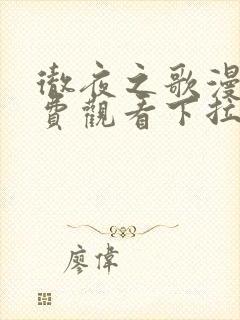 徹夜之歌漫
費觀看下拉
廖偉